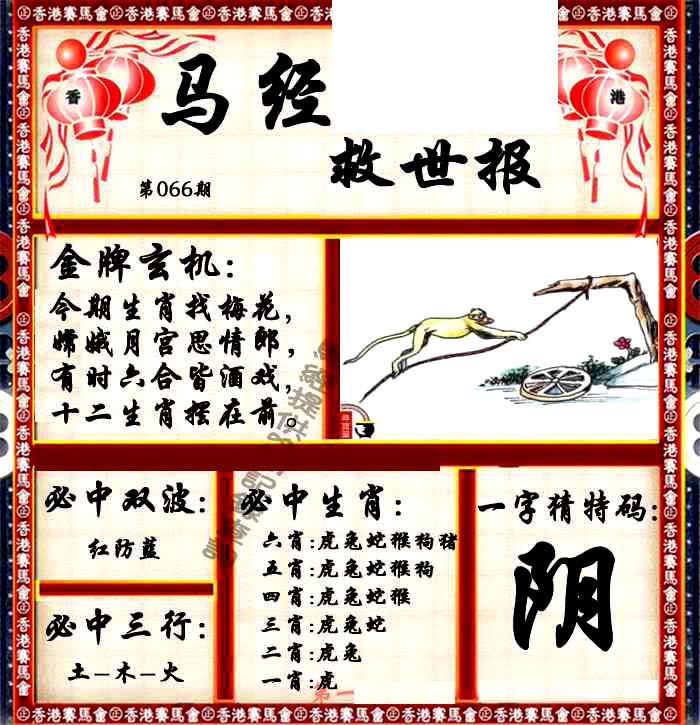 香港賽馬會
马经
香
港
救世报
第066期
金牌玄机：
今期生肖找梅花，
嫦娥月宫思情郎，
有时六合皆酒戏，
十二生肖摆在前。
必中双波：
红防蓝
必中三行：
土-木-火
必中生肖：
六肖:虎兔蛇猴狗猪
五肖:虎兔蛇猴狗
四肖:虎兔蛇猴
三肖:虎兔蛇
二肖:虎兔
一肖:虎
一字猜特码：
阴